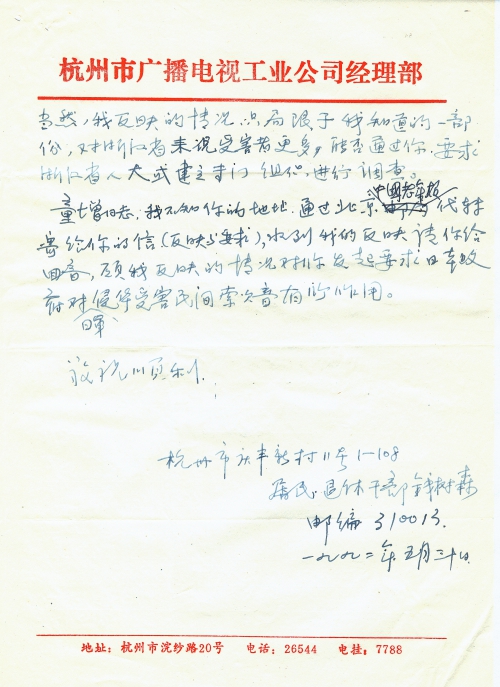 杭州市广播电视工业公司经理部
当然，我反映的情况只局限于我知道的一部
份，对浙江省来说受害者更多，能否通过你，要求
浙江省人大或建立专门组织，进行调查。
中国老年报
童增同志，我不知你的地址，通过北京代转
寄给你的信（反映与要求），收到我的反映请你给
回音，愿我反映的情况对你发起要求日本政
府对侵华受害民间索赔有所作用。
敬祝顺利
杭州市庆丰新村11号1-108
居民、退休干部 树森
邮编310013.
一九九二年五月三十日
地址：杭州市浣纱路20号 电话：26544 电挂：7788